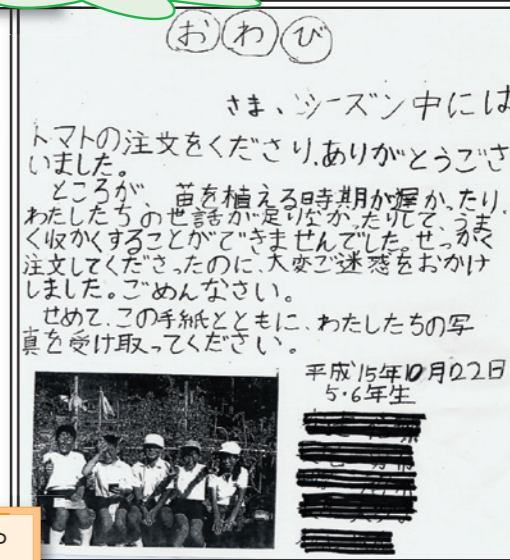 おわび
さま、シーズン中には
トマトの注文をくださり、ありがとうござ
いました。
ところが、苗を植える時期が遅かったり、
わたしたちの世話が足りなかったりして、うま
く収かくすることができませんでした。せっかく
注文してくださったのに、大変ご迷惑をおかけ
しました。ごめんなさい。
せめて、この手紙とともに、わたしたちの写
真を受け取ってください。
平成15年10月22日
5・6年生